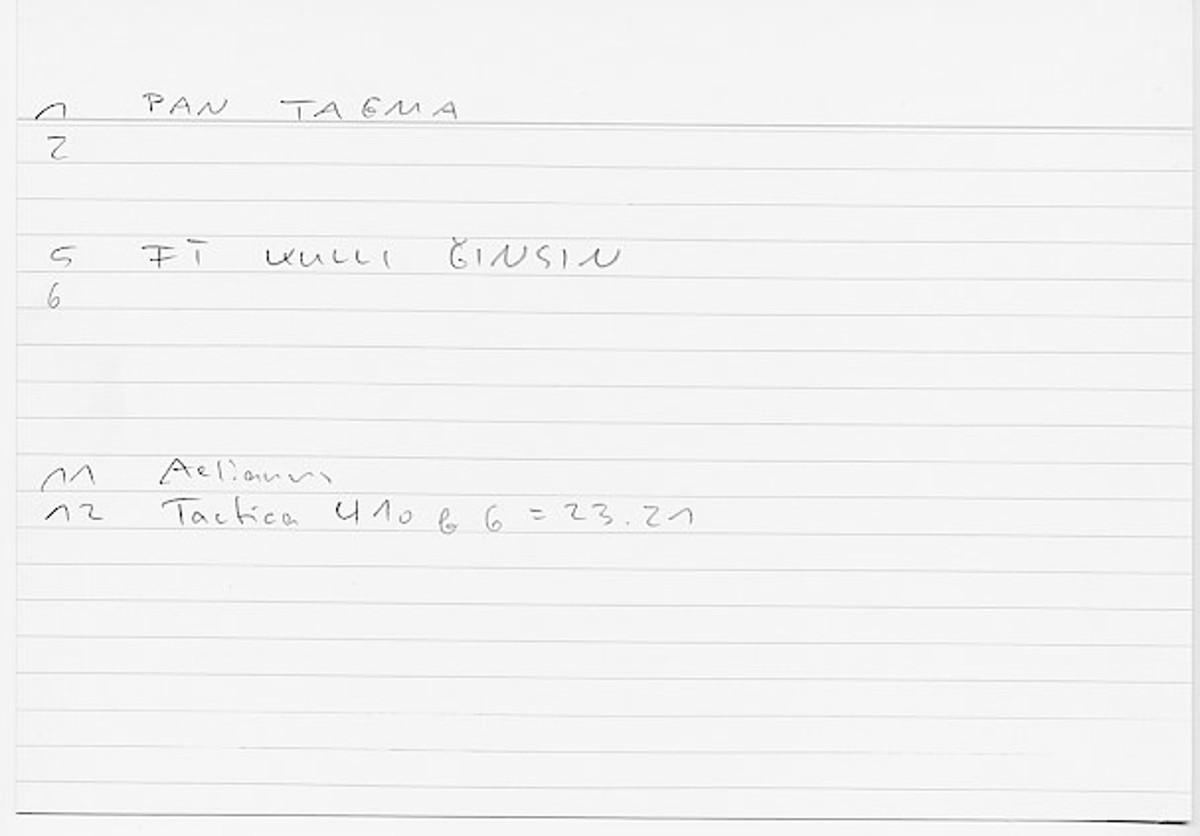 1 PAN TAGMA
2
5 FĪ KULLI ǦINSIN
6
11 Aelianus
12 Tactica 410 b 6 = 23.21